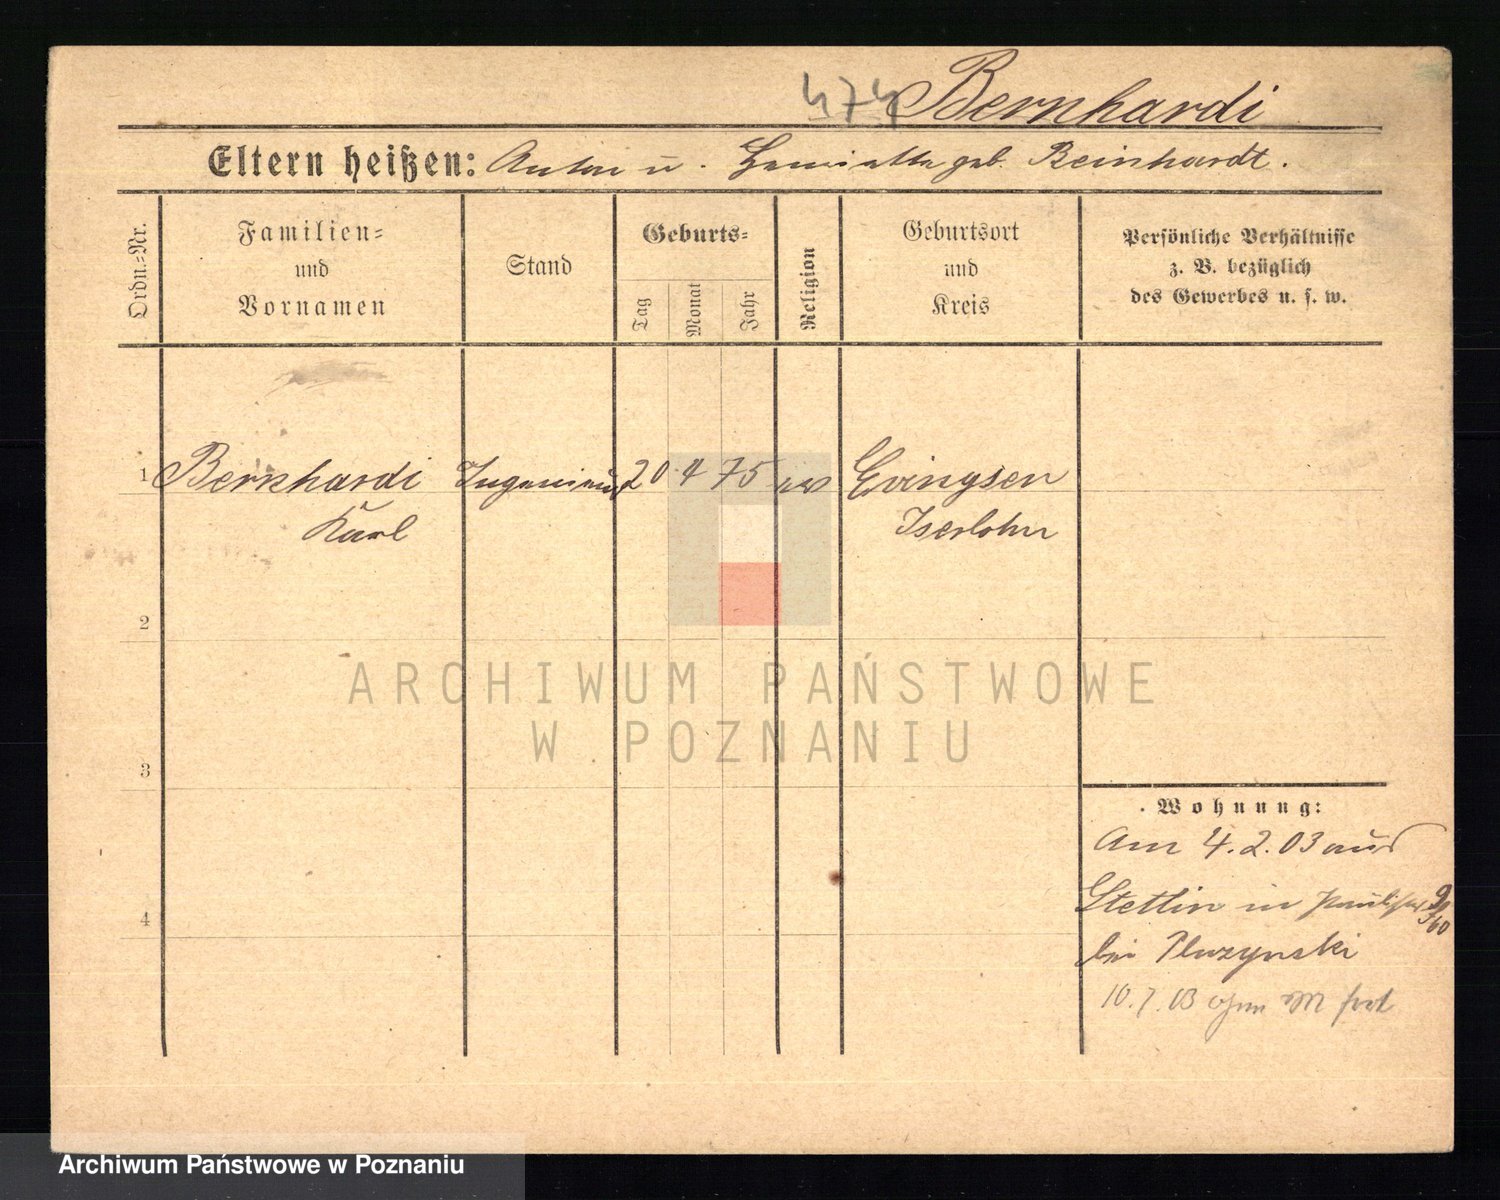 474 Bernhardi
Eltern heißen: Anton u. Henriette geb. Reinhardt.
Ordn.-Nr.
Familien-
und
Vornamen
Stand
Geburts-
Tag
Monat
Jahr
Religion
Geburtsort
und
Kreis
Persönliche Verhältnisse
z. B. bezüglich
des Gewerbes u. s. w.
1 Bernhardi Ingenieur 20 4 75 ev Evingsen
Karl Iserlohn
2
3
4
Wohnung:
Am 4.2.03 aus
Stettin in
bei Pluzynski
10.7.03 ohne M fort
ARCHIWUM PAŃSTWOWE
W POZNANIU
Archiwum Państwowe w Poznaniu